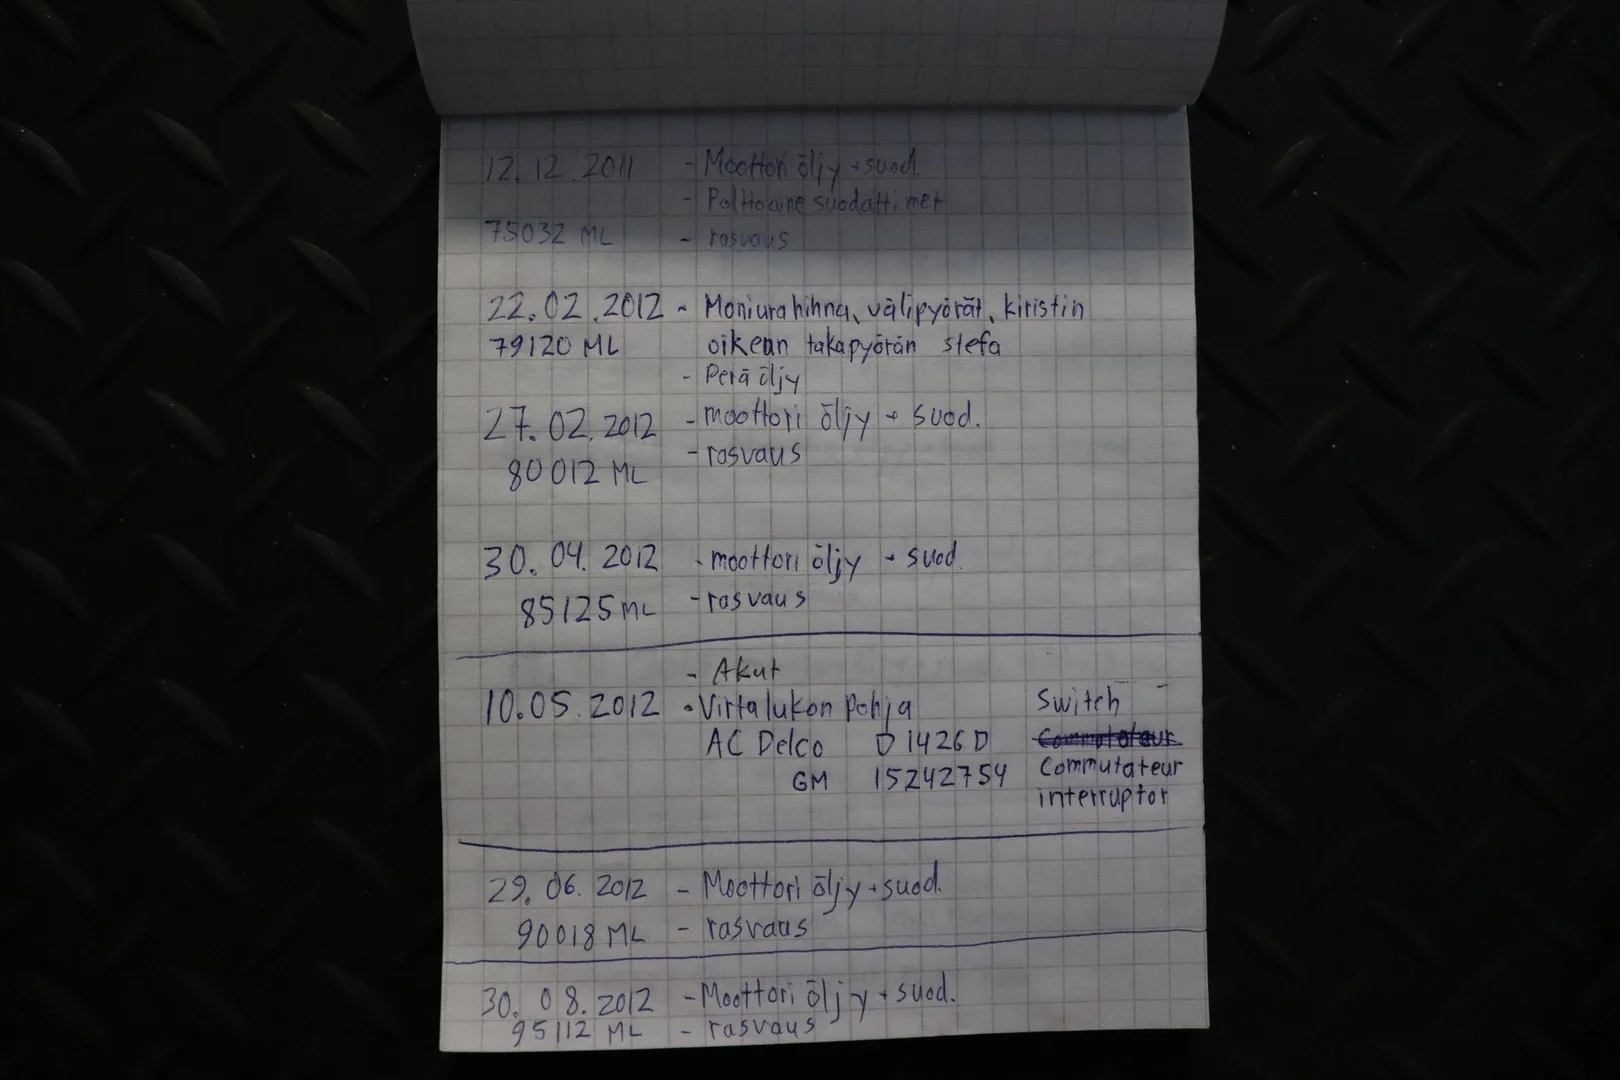 12.12.2011 - Moottori öljy + suod.
- Polttoaine suodattimet
75032 ML - rasvaus
22.02.2012 - Moniurahihna, välipyörät, kiristin
79120 ML oikean takapyörän stefa
- Perä öljy
27.02.2012 - moottori öljy + suod.
- rasvaus
80012 ML
30.04.2012 - moottori öljy + suod.
85125 ML - rasvaus
- Akut
10.05.2012 - Virtalukon Pohja Switch
AC Delco D1426D
GM 15242754 Commutateur
interruptor
29.06.2012 - Moottori öljy + suod.
90018 ML - rasvaus
30.08.2012 - Moottori öljy + suod.
95112 ML - rasvaus